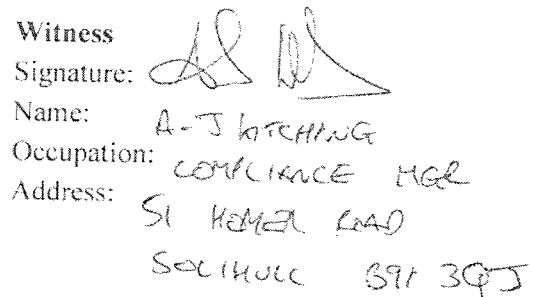 Witness
Signature:
Name: A-J KITCHING
Occupation: COMPLIANCE MGR
Address: 51 HOMER ROAD
SOLIHULL B91 3QJ